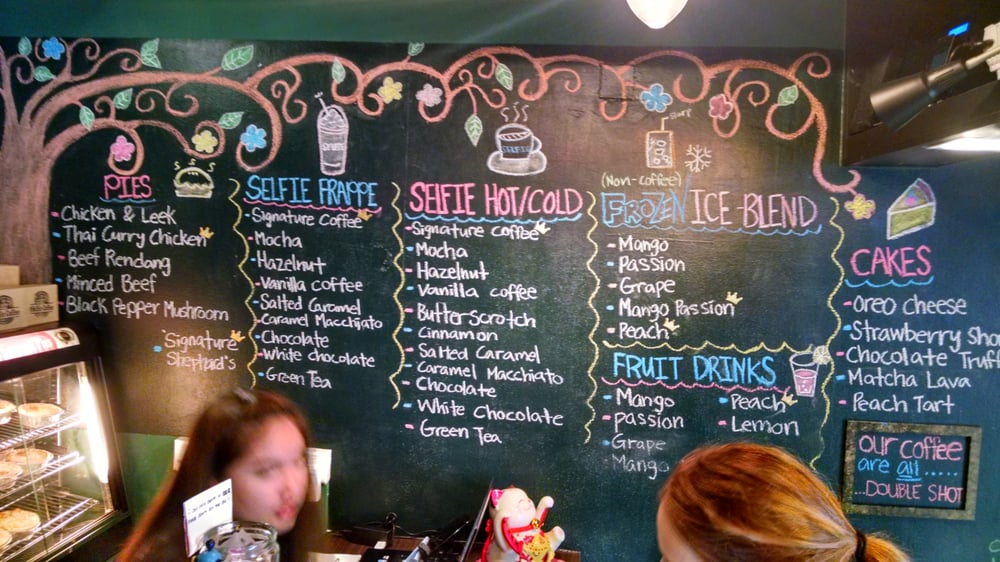 PIES
- Chicken & Leek
- Thai Curry Chicken
- Beef Rendang
- Minced Beef
- Black Pepper Mushroom
- Signature
- Shephard's
SELFIE FRAPPE
- Signature Coffee
- Mocha
- Hazelnut
- Vanilla coffee
- Salted Caramel
- Caramel Macchiato
- Chocolate
- White chocolate
- Green Tea
SELFIE
SELFIE HOT/COLD
- Signature coffee
- Mocha
- Hazelnut
- Vanilla coffee
- Butterscotch
- Cinnamon
- Salted Caramel
- Caramel Macchiato
- Chocolate
- White Chocolate
- Green Tea
(Non-coffee)
FROZEN ICE-BLEND
- Mango
- Passion
- Grape
- Mango Passion
- Peach
FRUIT DRINKS
- Mango
- passion
- Grape
- Mango
- Peach
- Lemon
CAKES
- Oreo cheese
- Strawberry
- Chocolate
- Matcha Lava
- Peach Tart
our coffee
are all .....
...DOUBLE SHOT